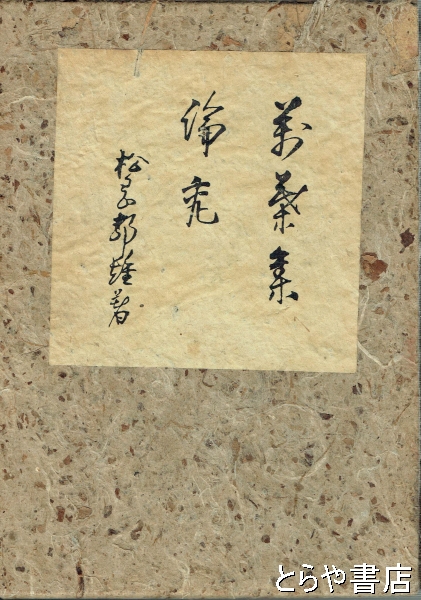 萬葉集
論究
松岡静雄著
とらや書店